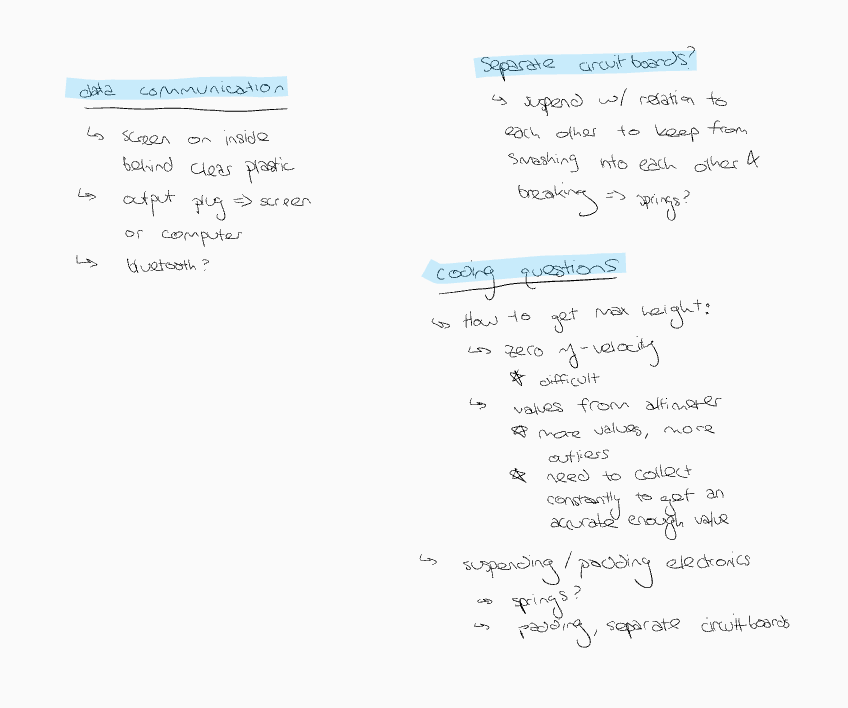 data communication
↳ screen on inside
behind clear plastic
↳ output plug => screen
or computer
↳ bluetooth?
separate circuit boards?
↳ suspend w/ relation to
each other to keep from
smashing into each other &
breaking => springs?
coding questions
↳ How to get max height:
↳ zero y-velocity
* difficult
↳ values from altimeter
* more values, more
outliers
* need to collect
constantly to get an
accurate enough value
↳ suspending / padding electronics
↳ springs?
↳ padding, separate circuit boards